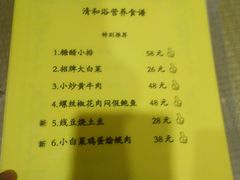 清和浴营养食谱
特别推荐
1.糖醋小排 58元
2.招牌大白菜 26元
3.小炒黄牛肉 48元
4.螺丝椒花肉闷假鲍鱼 48元
新 5.线豆烧土豆 28元
新 6.小白菜鸡蛋烩焖肉 38元